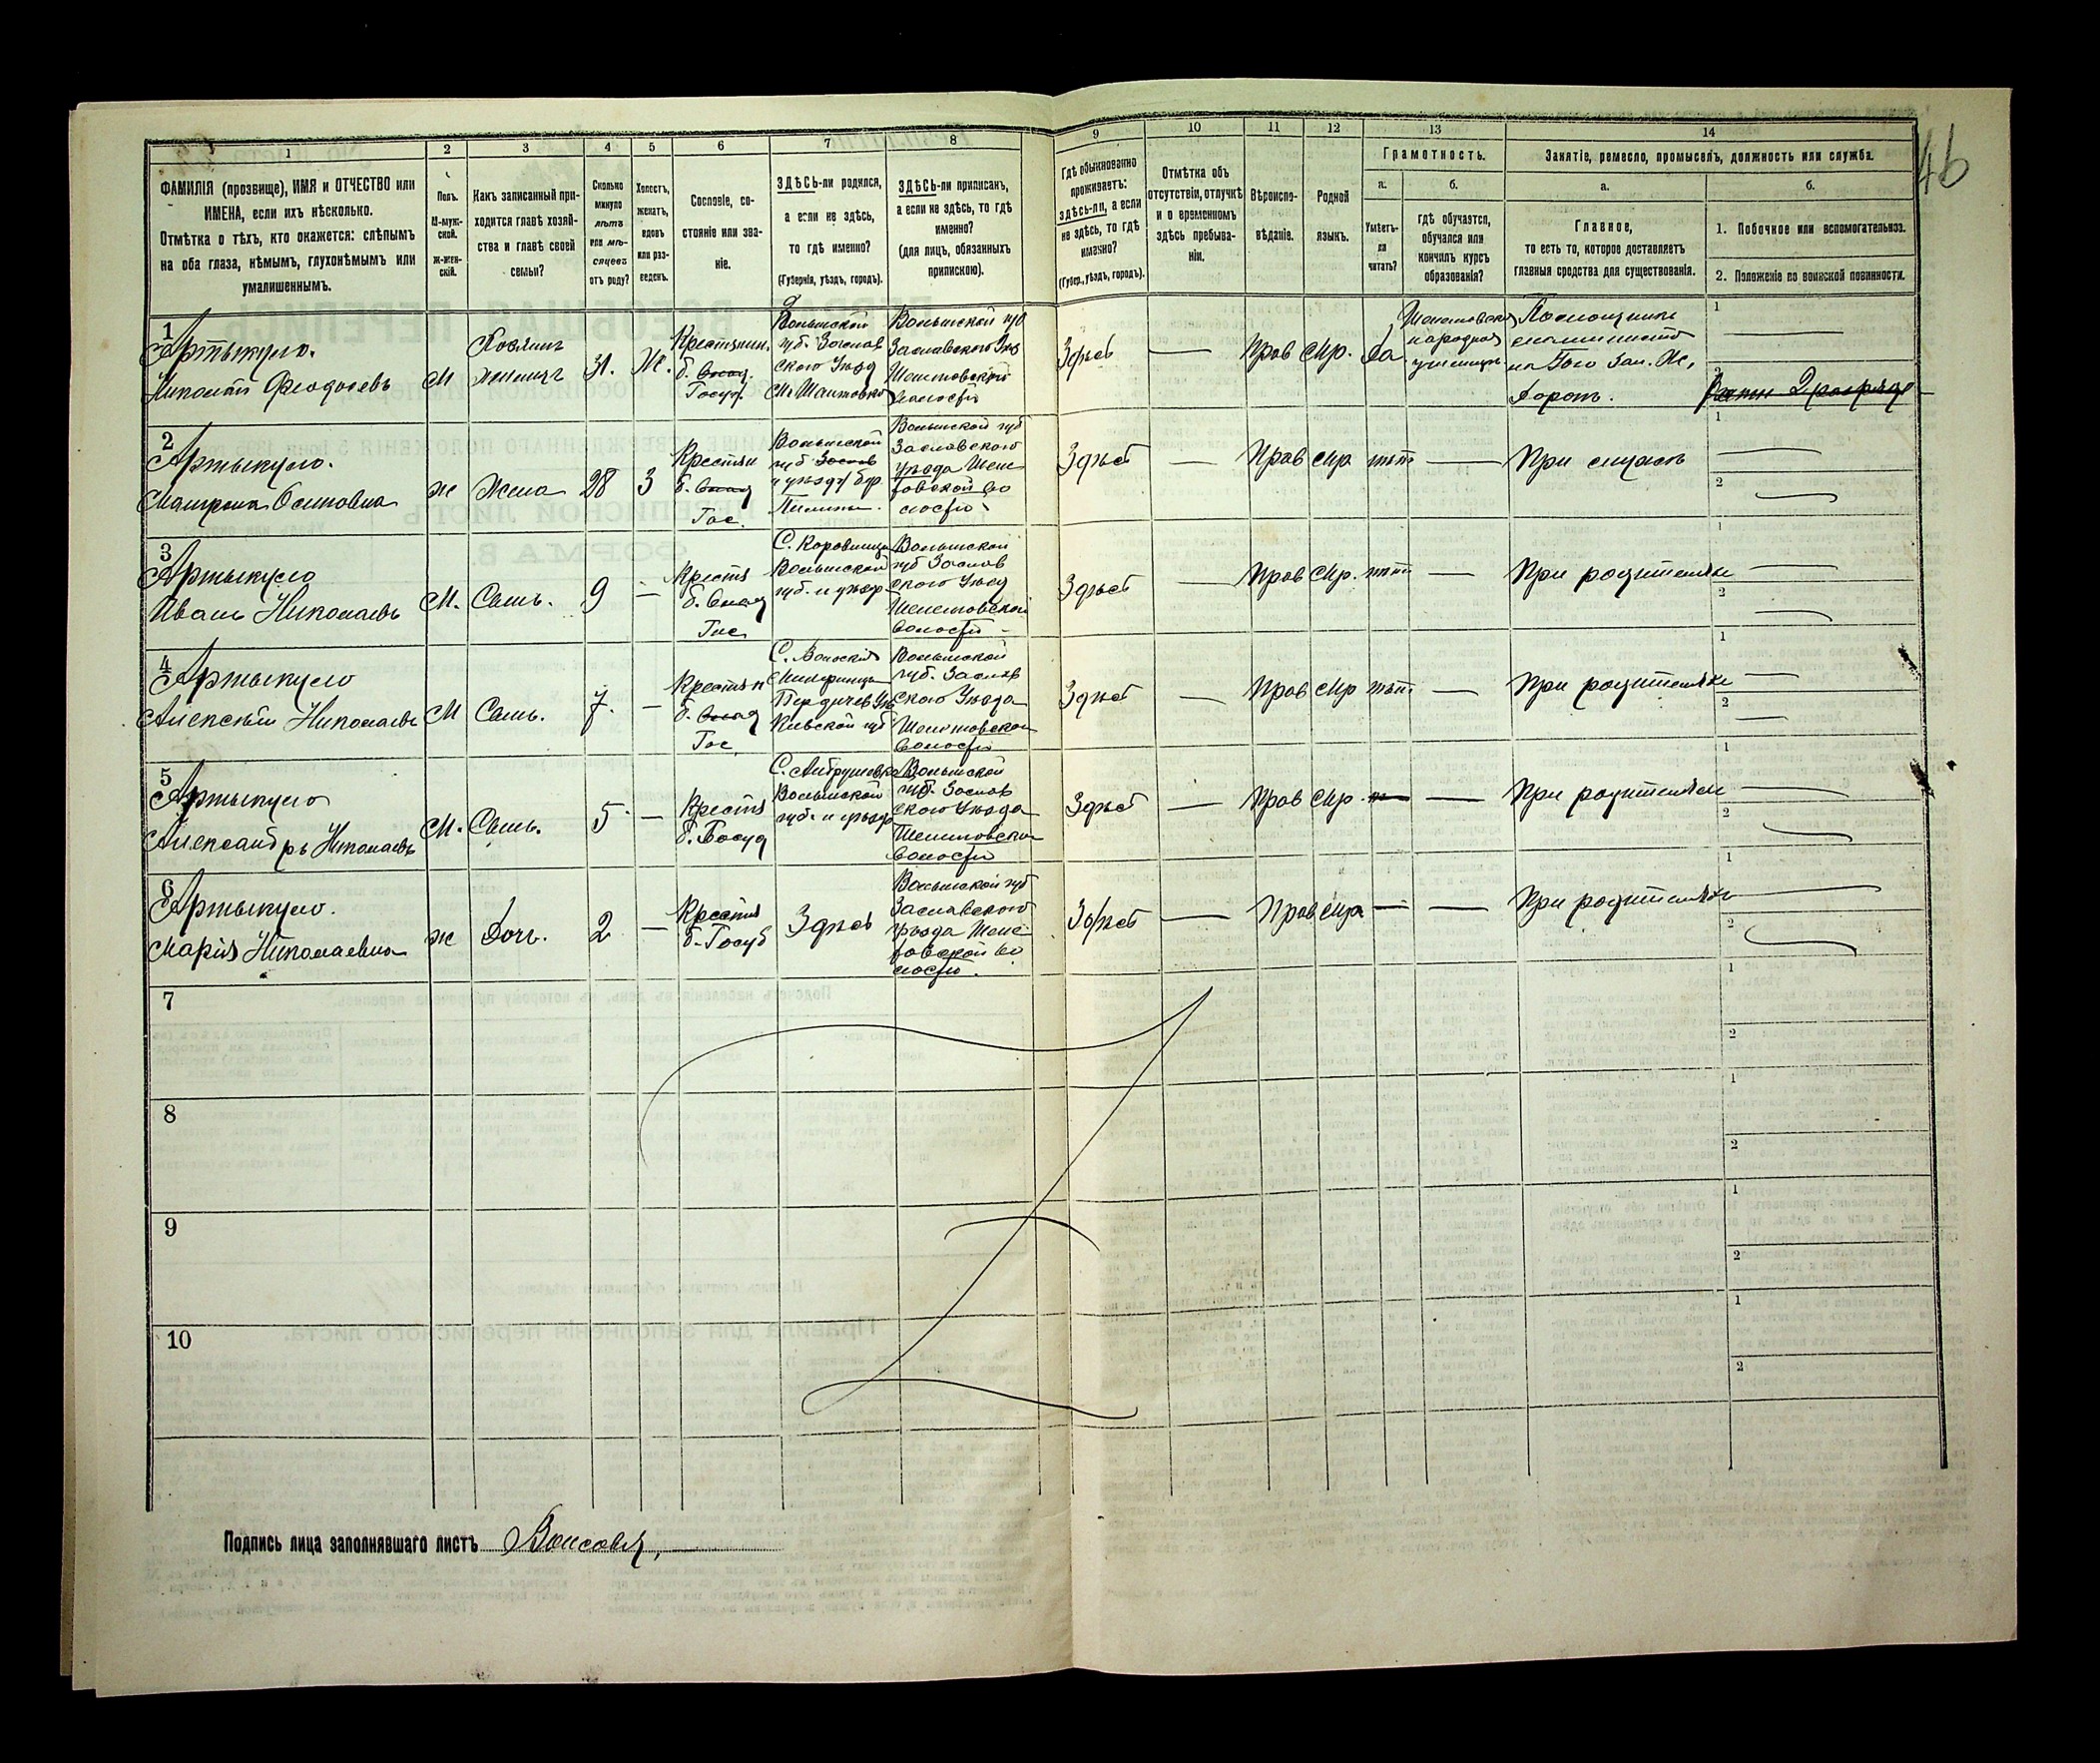 46
1 2 3 4 5 6 7 8 9 10 11 12 13 14
ФАМИЛІЯ (прозвище), ИМЯ и ОТЧЕСТВО или
ИМЕНА, если ихъ нѣсколько.
Отмѣтка о тѣхъ, кто окажется: слѣпымъ
на оба глаза, нѣмымъ, глухонѣмымъ или
умалишеннымъ.
Полъ.
М-муж-
ской.
ж-жен-
скій.
Какъ записанный при-
ходится главѣ хозяй-
ства и главѣ своей
семьи?
Сколько
минуло
лѣтъ
или мѣ-
сяцевъ
отъ роду?
Холостъ,
женатъ,
вдовъ
или раз-
веденъ.
Сословіе, со-
стояніе или зва-
ніе.
ЗДѢСЬ-ли родился,
а если не здѣсь,
то гдѣ именно?
(Губернія, уѣздъ, городъ).
ЗДѢСЬ-ли приписанъ,
а если не здѣсь, то гдѣ
именно?
(для лицъ, обязанныхъ
припискою).
Гдѣ обыкновенно
проживаетъ:
здѣсь-ли, а если
не здѣсь, то гдѣ
именно?
(Губер., уѣздъ, городъ).
Отмѣтка объ
отсутствіи, отлучкѣ
и о временномъ
здѣсь пребыва-
ніи.
Вѣроиспо-
вѣданіе.
Родной
языкъ.
Грамотность.
а.
Умѣетъ-
ли
читать?
б.
гдѣ обучается,
обучался или
кончилъ курсъ
образованія?
Занятіе, ремесло, промыселъ, должность или служба.
а.
Главное,
то есть то, которое доставляетъ
главныя средства для существованія.
б.
1. Побочное или вспомогательное.
2. Положеніе по воинской повинности.
1
Артыкуло.
Николай Феодосіевъ
М
Хозяинъ
31.
Ж.
Крестянин.
б.
Госуд.
Волынской
губ. Заслав
скаго Уѣзд
Волынской губ
Заславскаго Уѣз
Волости
Здѣсь
Прав
Мр.
Да
народное
училище
Помощникъ
на Юго Зап. Ж.
Дорогѣ.
1
2
2
Артыкуло.
Матрена Осиповна
ж
Жена
28
З
Крестян
б.
Гос.
Волынской
губ
Волынской губ
Заславскаго
уѣзда Шепе
товской во
лости
Здѣсь
Прав
Мр
нѣтъ
При мужѣ
1
2
3
Артыкуло
Иванъ Николаевъ
М.
Сынъ.
9
Крестя
б.
Гос
С. Коровинцы
Волынской
губ. и уѣзд
Волынской
губ Заслав
скаго Уѣзд
Шепетовской
Волости
Здѣсь
Прав
Мр.
нѣтъ
При родителяхъ
1
2
4
Артыкуло
Алексѣй Николаевъ
М
Сынъ.
7.
Крестян
б.
Гос
Бердичев Уѣз
Киевской губ
Волынской
губ. Заслав
скаго Уѣзда
Шепетовской
Волости
Здѣсь
Прав
Мр
нѣтъ
При родителяхъ
1
2
5
Артыкуло
Александръ Николаевъ
М.
Сынъ.
5
Крестя
б. Госуд
С. Андрушевка
Волынской
губ. и уѣзд
Волынской
губ. Заслав
скаго Уѣзда
Шепетовской
Волости
Здѣсь
Прав
Мр.
При родителяхъ
1
2
6
Артыкуло.
Марія Николаевна
ж
Дочь.
2
Крестя
б. Госуд
Здѣсь
Волынской губ
Заславскаго
Уѣзда Шепе
товской во
лости.
Здѣсь
Прав
Мр
При родителяхъ
1
2
7
1
2
8
1
2
9
1
2
10
1
2
Подпись лица заполнявшаго листъ